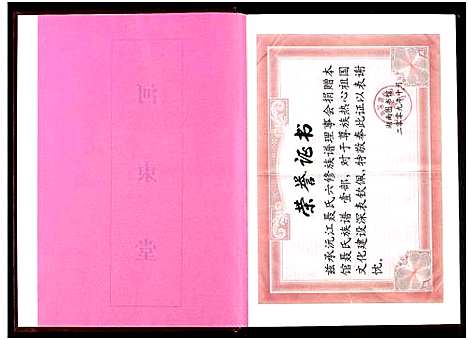 河
东
堂
荣誉证书
兹承沅江聂氏六修族谱理事会捐赠本
馆聂氏族谱壹部，对于尊族热心祖国
文化建设深表钦佩，特敬奉此证以表谢
忱。
湖南图书馆
二零零九年十月